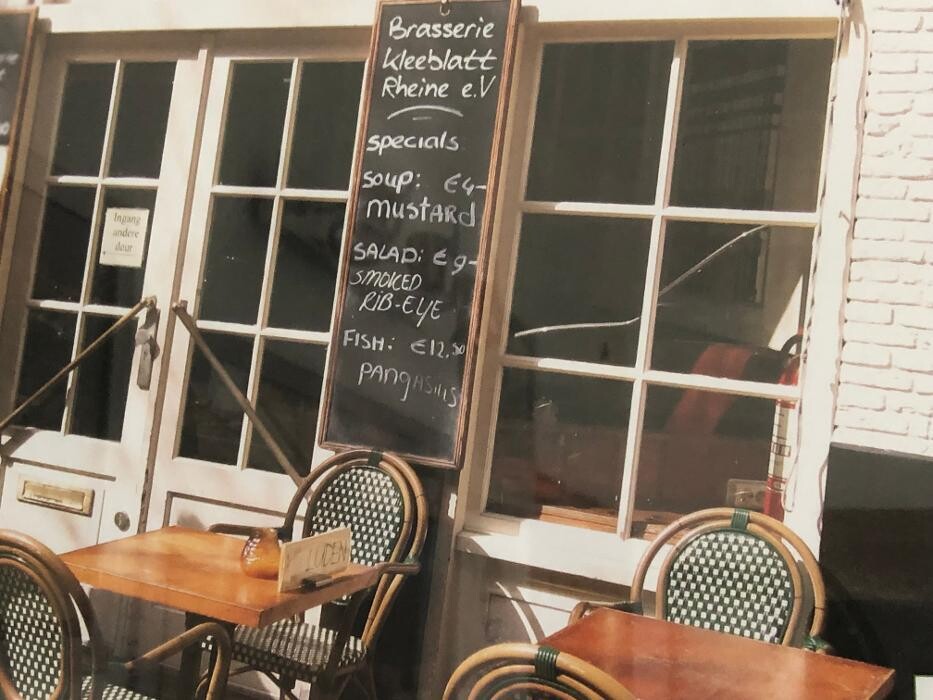 Brasserie
Kleeblatt
Rheine e.V
specials
SOUP: €4-
MUSTARD
SALAD: €9-
SMOKED
RIB-EYE
FISH: €12,50
PANGASIUS
Ingang
andere
deur